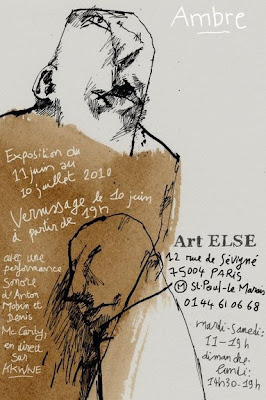 Ambre
Exposition du
11 juin au
10 juillet 2010
Vernissage le 10 juin
à partir de 19h
avec une
performance
sonore
d'Anton
Mobin et
Denis
Mc Carty,
en direct
sur
Art ELSE
12 rue de Sévigné
75004 PARIS
M St-Paul-le Marais
01 44 61 06 68
mardi-samedi:
11-19h
dimanche-
lundi:
14h30-19h